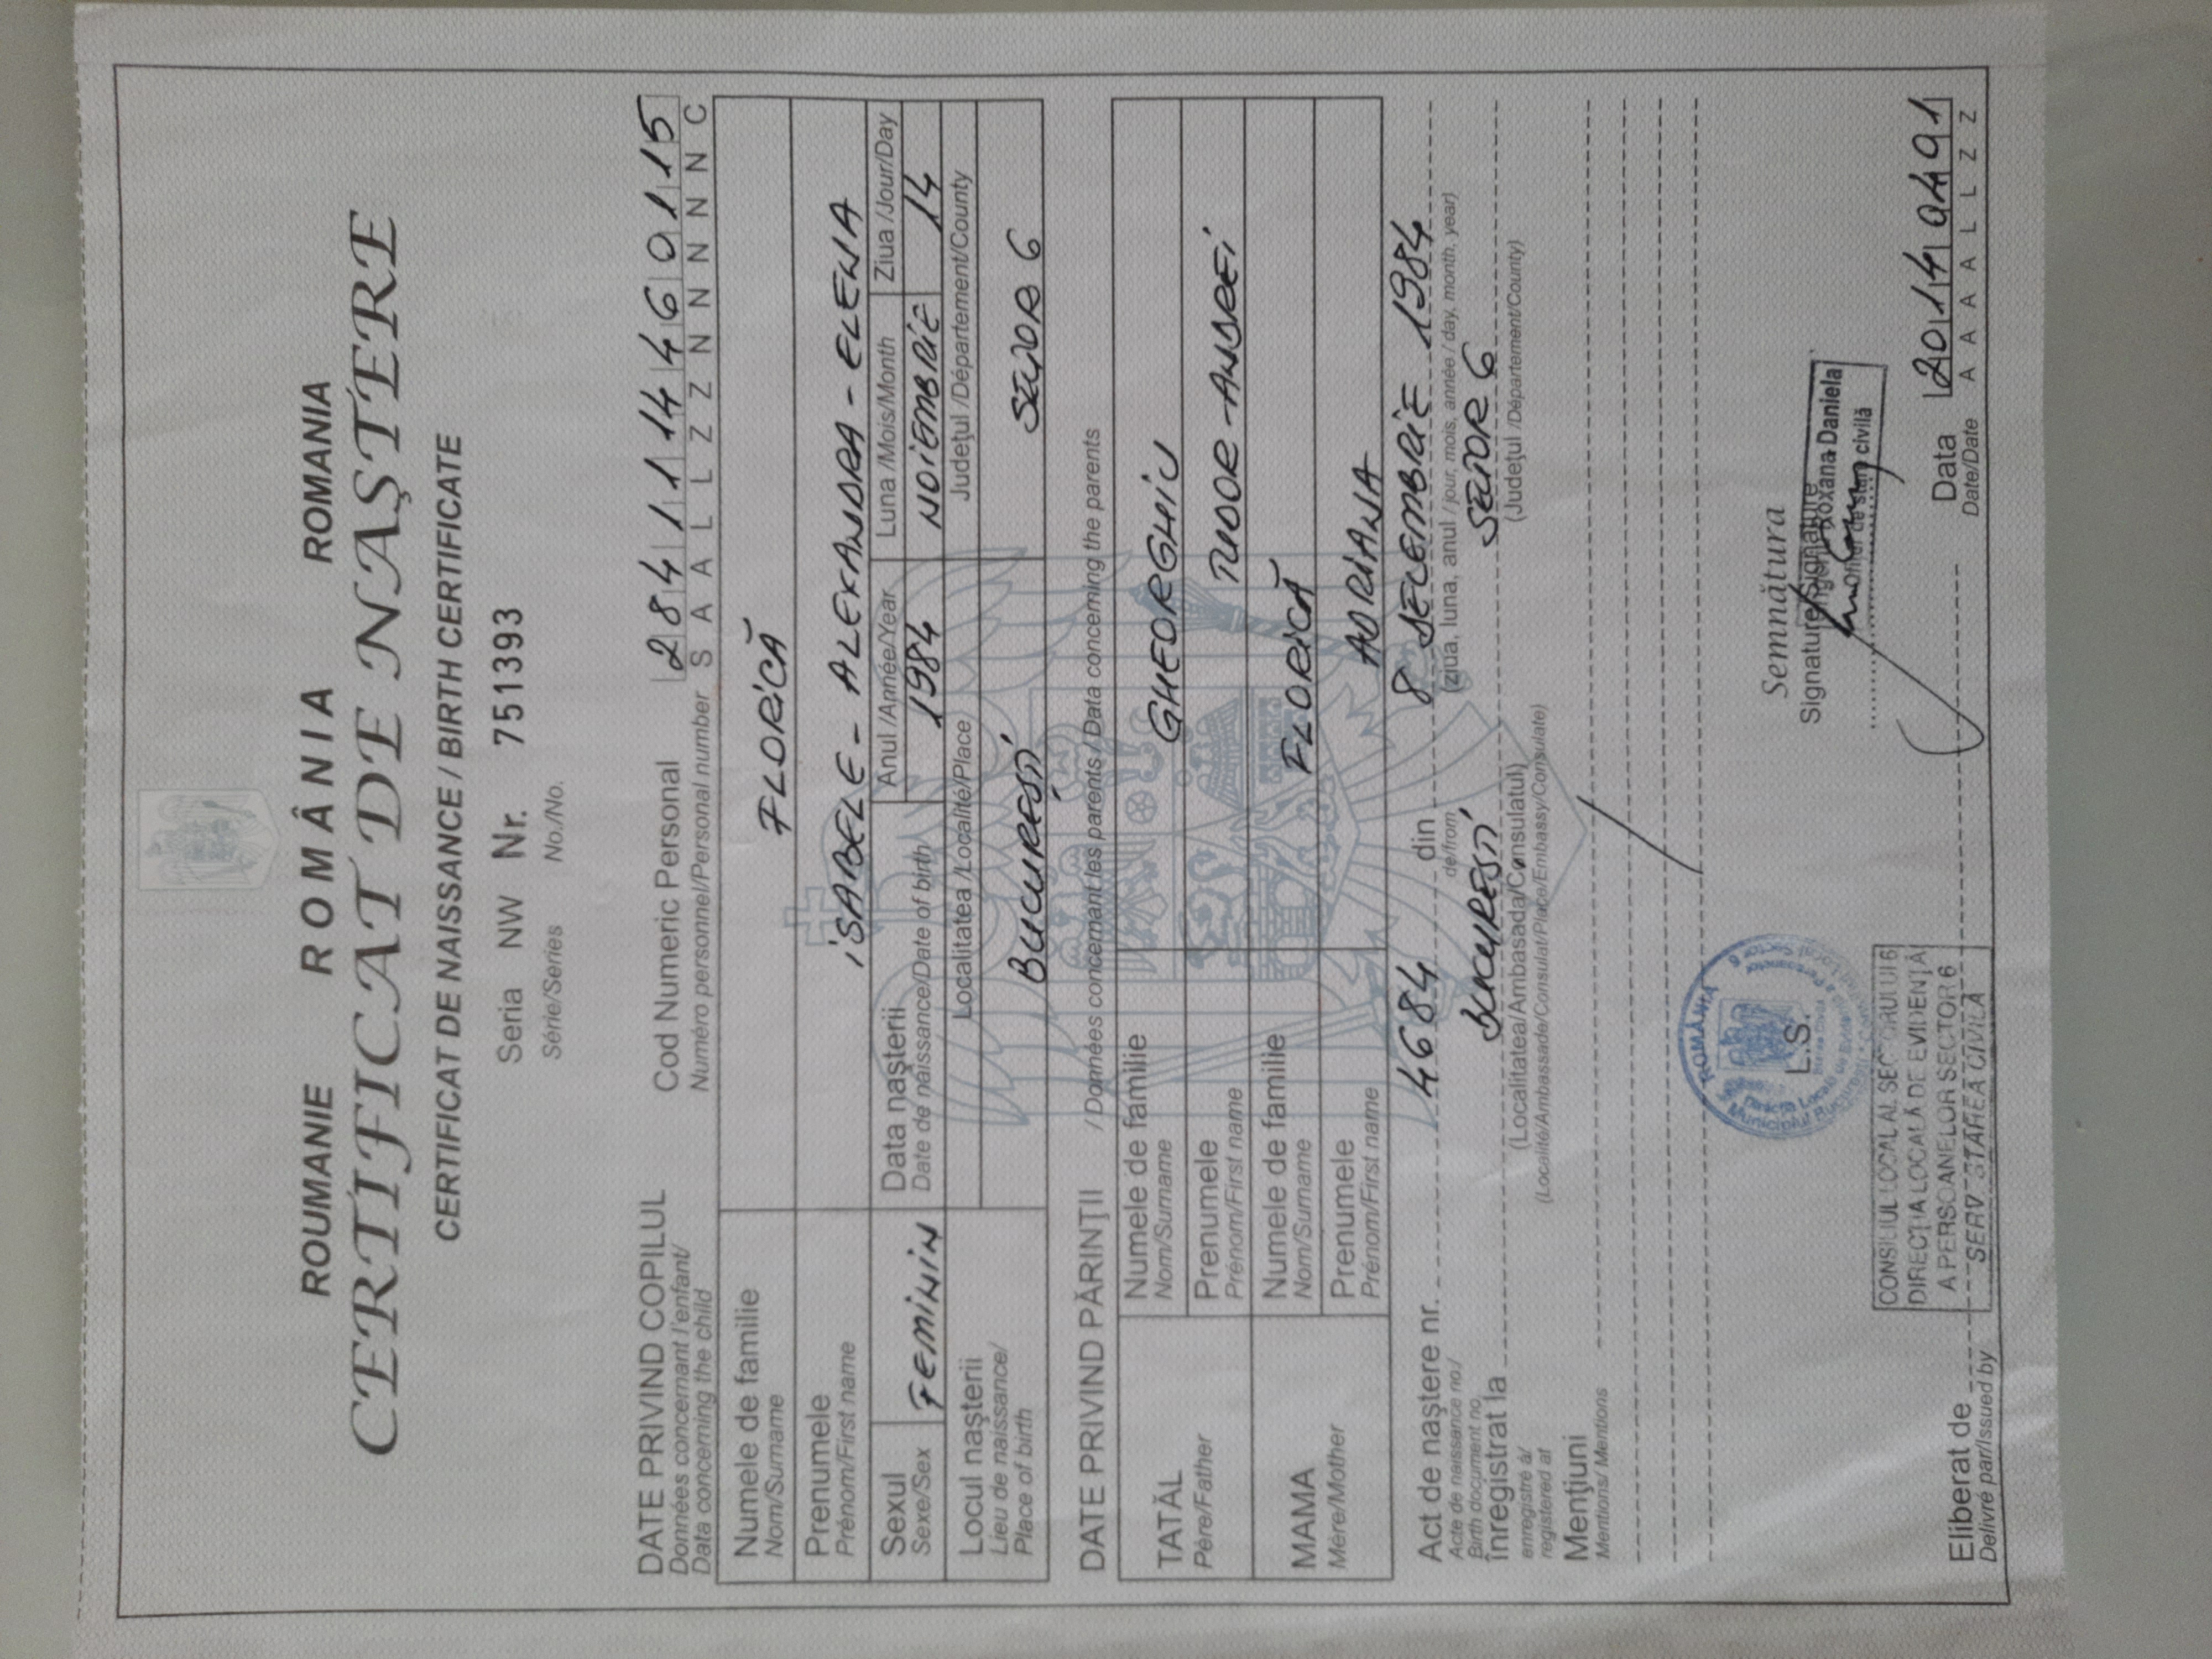 ROUMANIE ROMÂNIA ROMANIA
CERTIFICAT DE NAŞTERE
CERTIFICAT DE NAISSANCE / BIRTH CERTIFICATE
Seria NW Nr. 751393
Série/Series No./No.
DATE PRIVIND COPILUL
Données concernant l'enfant/
Data concerning the child
Cod Numeric Personal 2841114460115
Numéro personnel/Personal number S A A L L Z Z N N N N N C
Numele de familie
Nom/Surname
FLORICĂ
Prenumele
Prénom/First name
ISABELE - ALEXANDRA - ELENA
Sexul
Sexe/Sex
FEMININ
Data naşterii
Date de naissance/Date of birth
Anul /Année/Year Luna /Mois/Month Ziua /Jour/Day
1984 NOIEMBRIE 14
Locul naşterii
Lieu de naissance/
Place of birth
Localitatea /Localité/Place Judeţul /Département/County
BUCUREȘTI SECTOR 6
DATE PRIVIND PĂRINŢII / Données concernant les parents / Data concerning the parents
TATĂL
Père/Father
Numele de familie
Nom/Surname
GHEORGHIU
Prenumele
Prénom/First name
TUDOR - ANDREI
MAMA
Mère/Mother
Numele de familie
Nom/Surname
FLORICĂ
Prenumele
Prénom/First name
ADRIANA
Act de naştere nr. 4684 din 8 DECEMBRIE 1984
Acte de naissance no./ de/from (ziua, luna, anul / jour, mois, année / day, month, year)
Birth document no.
înregistrat la BUCUREȘTI SECTOR 6
enregistré à/ (Localitatea/Ambasada/Consulatul) (Judeţul /Département/County)
registered at (Localité/Ambassade/Consulat/Place/Embassy/Consulate)
Menţiuni
Mentions/ Mentions
ROMÂNIA
L.S.
Semnătura
Signature/Signature
Roxana Daniela
Ofiţer de stare civilă
CONSILIUL LOCAL AL SECTORULUI 6
DIRECŢIA LOCALĂ DE EVIDENŢĂ
A PERSOANELOR SECTOR 6
SERV. STAREA CIVILĂ
Eliberat de
Delivré par/Issued by
Data 20140401
Date/Date A A A A L L Z Z